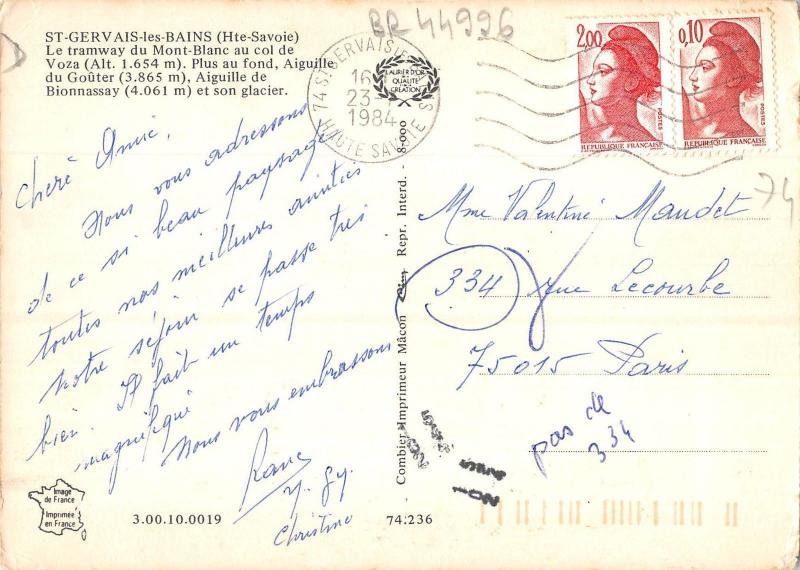 BR 44996
ST-GERVAIS-les-BAINS (Hte-Savoie)
Le tramway du Mont-Blanc au col de
Voza (Alt. 1.654 m). Plus au fond, Aiguille
du Goûter (3.865 m), Aiguille de
Bionnassay (4.061 m) et son glacier.
74 ST GERVAIS
16
23-
1984
HAUTE SAVOIE
LAURIER D'OR
QUALITÉ
CRÉATION
2,00
POSTES
REPUBLIQUE FRANÇAISE
0,10
POSTES
REPUBLIQUE FRANÇAISE
74
Chère Amie,
Nous vous adressons
de ce si beau paysage
toutes nos meilleures amitiés
Notre séjour se passe très
bien. Il fait un temps
magnifique
Nous vous embrassons
Christine
Combier Imprimeur Mâcon Cim Repr. Interd. - 8-000
Mme Valentine Maudet
334 rue Lecourbe
75015 Paris
pas de
334
Image
de France
Imprimée
en France
3.00.10.0019
74.236